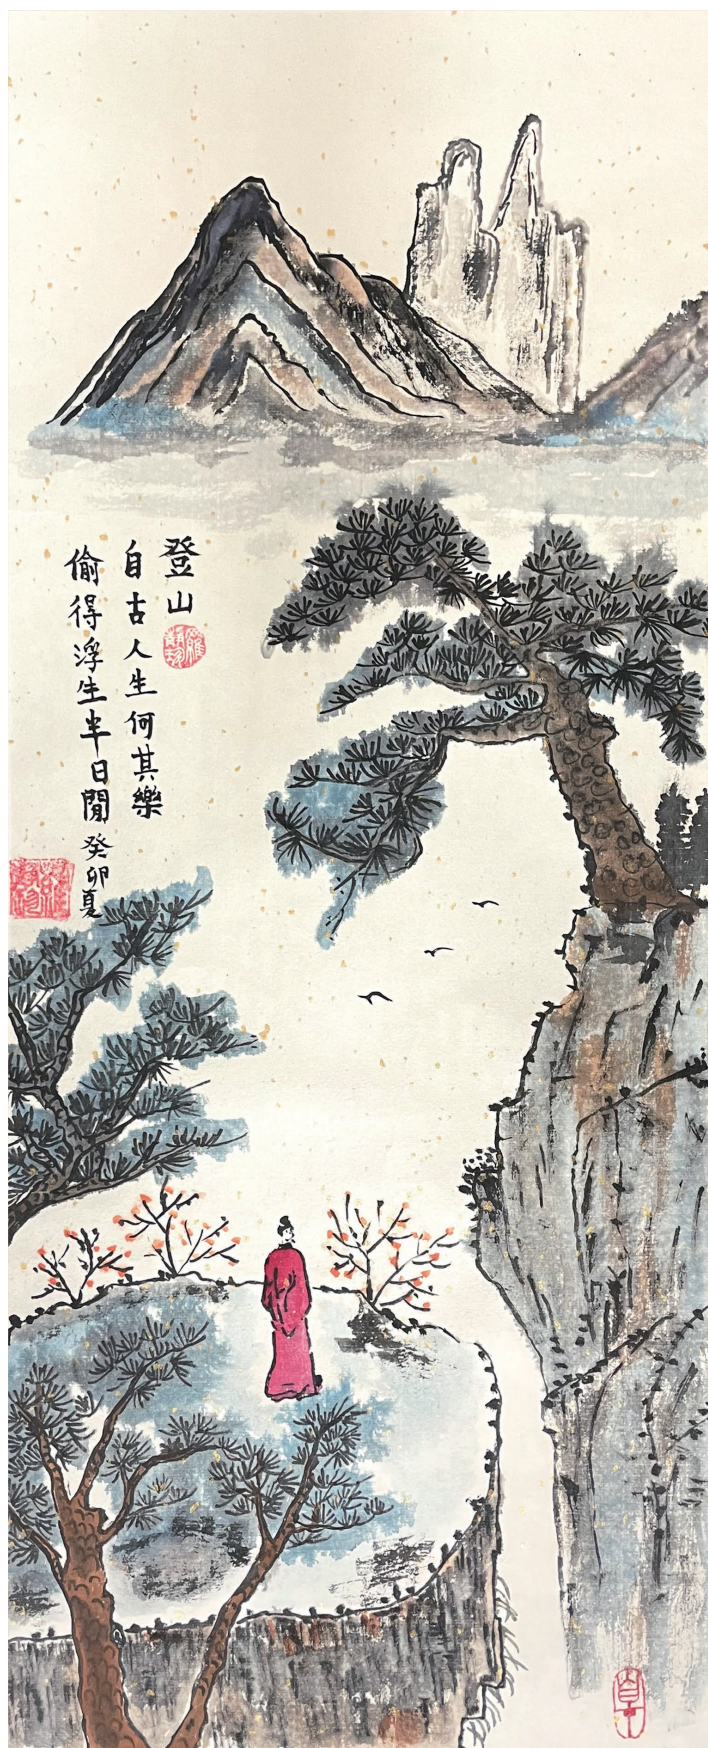 登山
自古人生何其樂
偷得浮生半日閒
癸卯夏